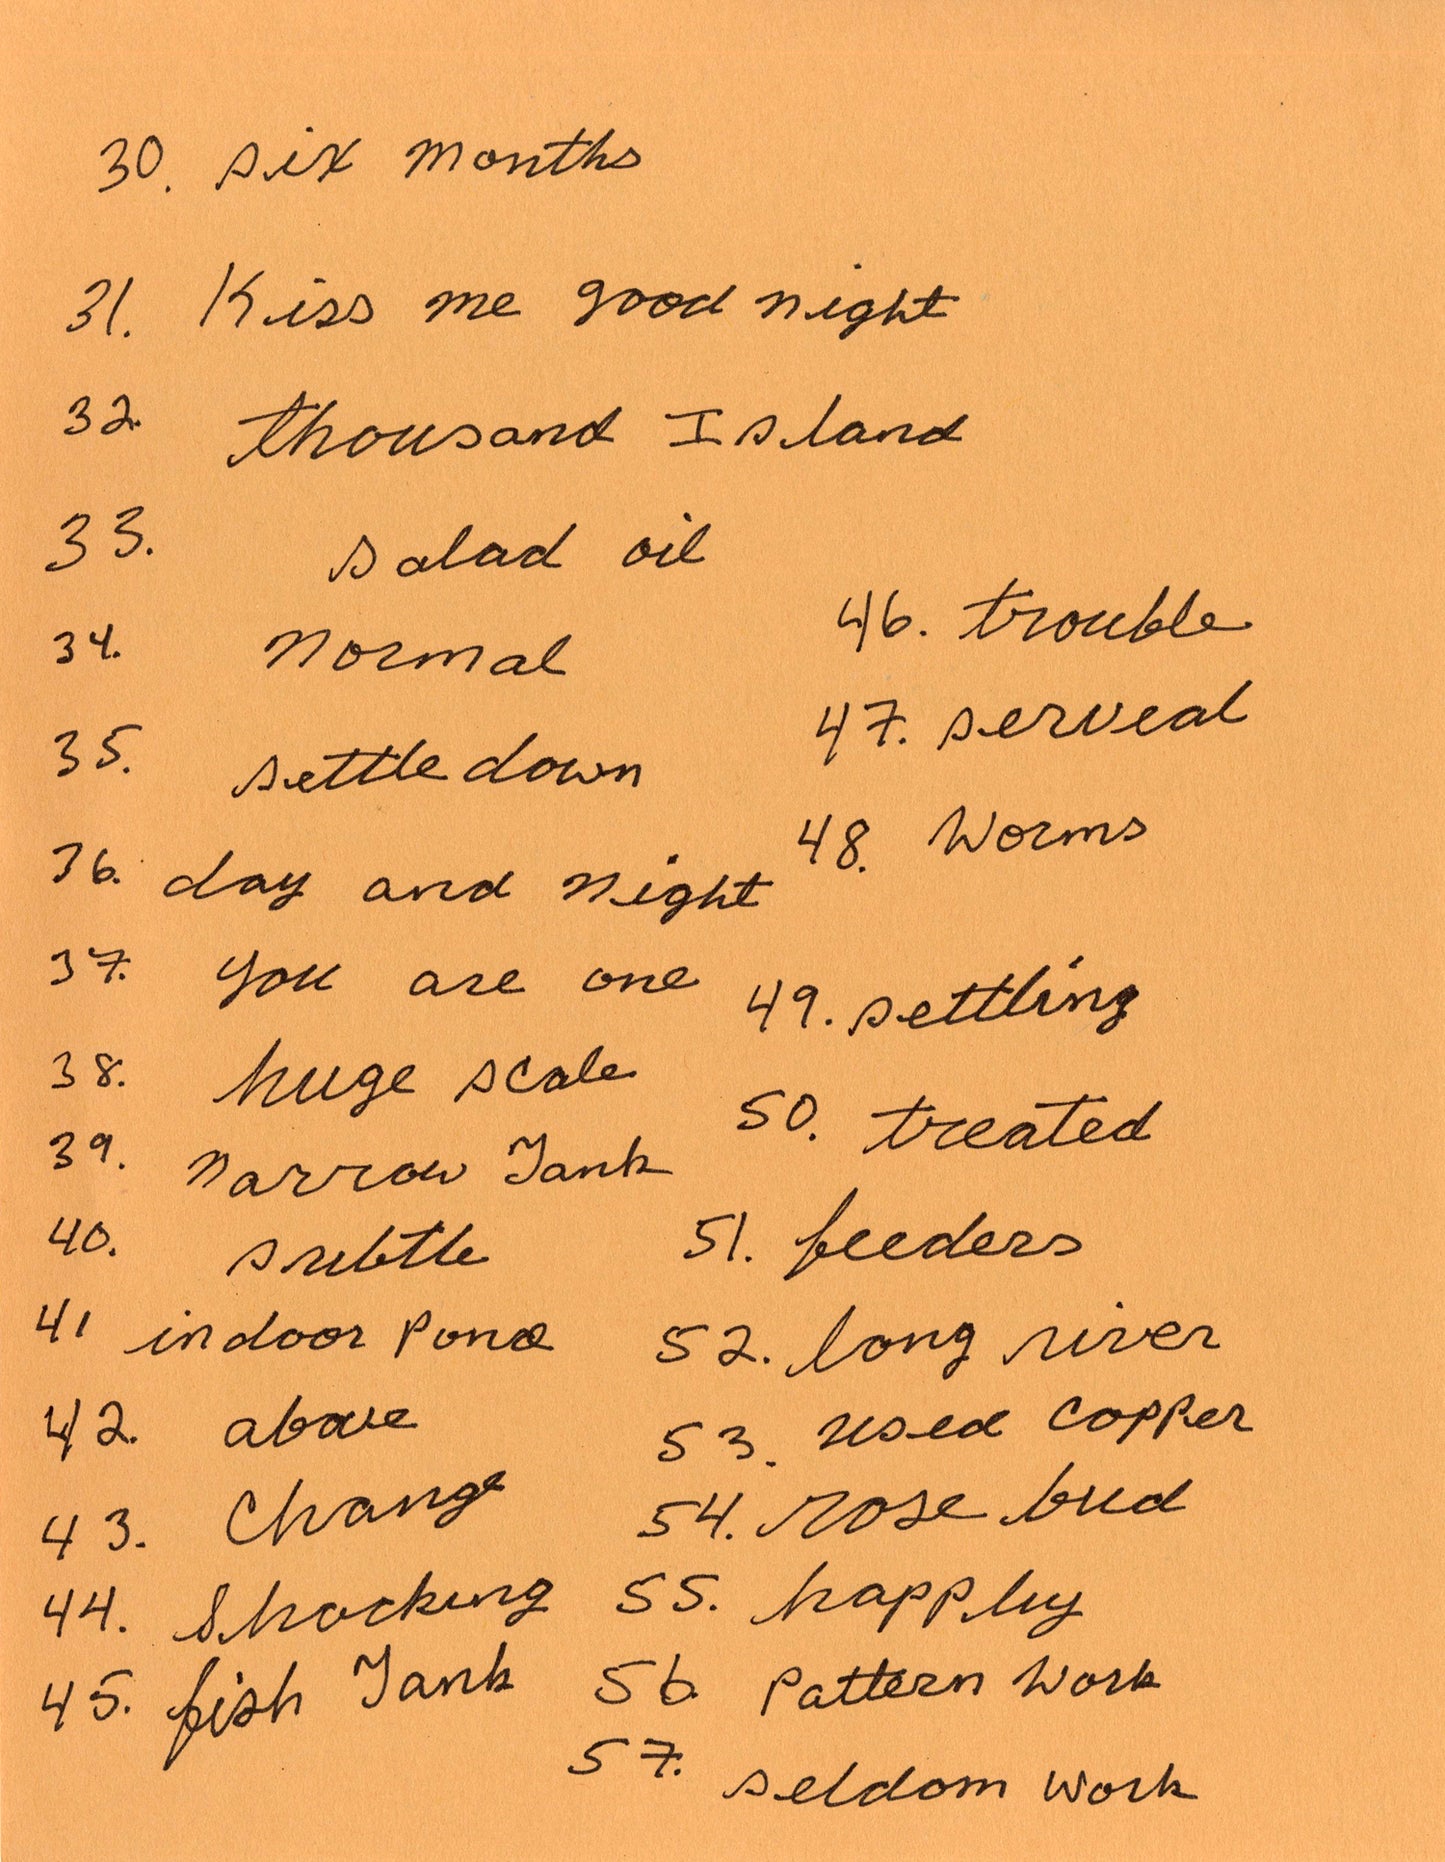 30. six months
31. Kiss me good night
32. thousand Island
33. salad oil
34. normal
35. settle down
36. day and night
37. you are one
38. huge scale
39. narrow Tank
40. subtle
41 indoor Pond
42. above
43. Change
44. Shocking
45. fish Tank
46. trouble
47. serveal
48. Worms
49. settling
50. treated
51. feeders
52. long river
53. used copper
54. rose bud
55. happly
56 Pattern Work
57. seldom work